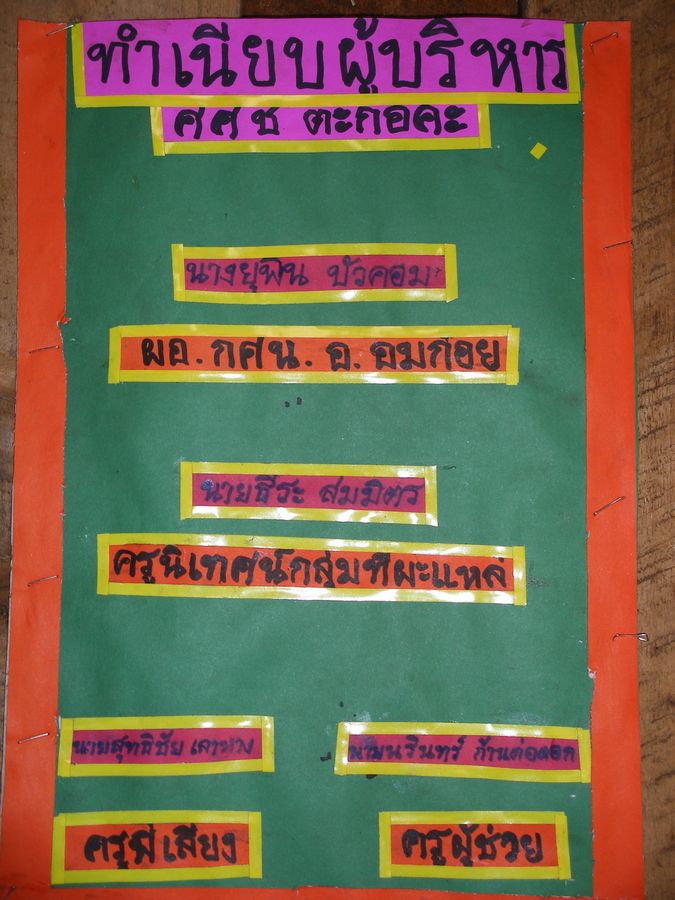 ทำเนียบผู้บริหาร
ศศช ตะกอคะ
นางยุพิน บัวคอม
ผอ.กศน.อ.อมก๋อย
นายธีระ สมมิตร
ครูนิเทศน์กลุ่มที่ผะแหล่
นายสุทธิชัย เลาหาง นายนรินทร์ ก้านต่อดอก
ครูพี่เลี้ยง ครูผู้ช่วย